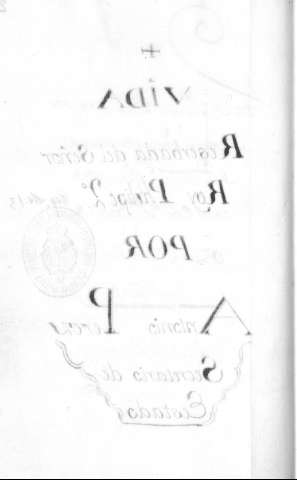 +
VIDA
Reserbada del Señor
Rey Phelipe 2º
POR
Antonio Perez
Secretario de
Estado